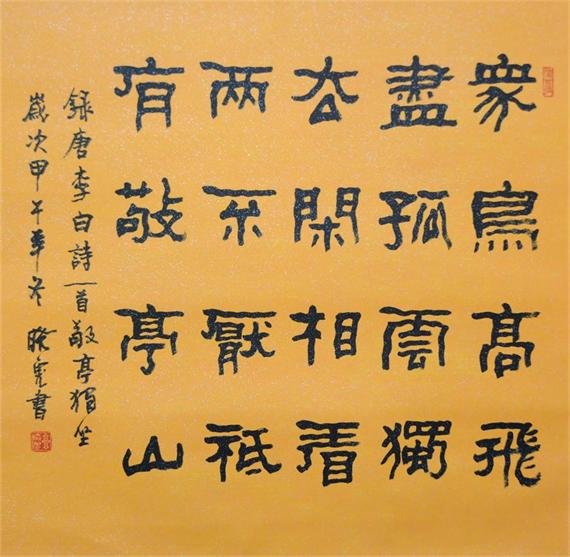 衆鳥高飛
盡孤雲獨
去閑相看
两不厭祗
有敬亭山
録唐李白詩一首敬亭獨坐
歲次甲午年冬書